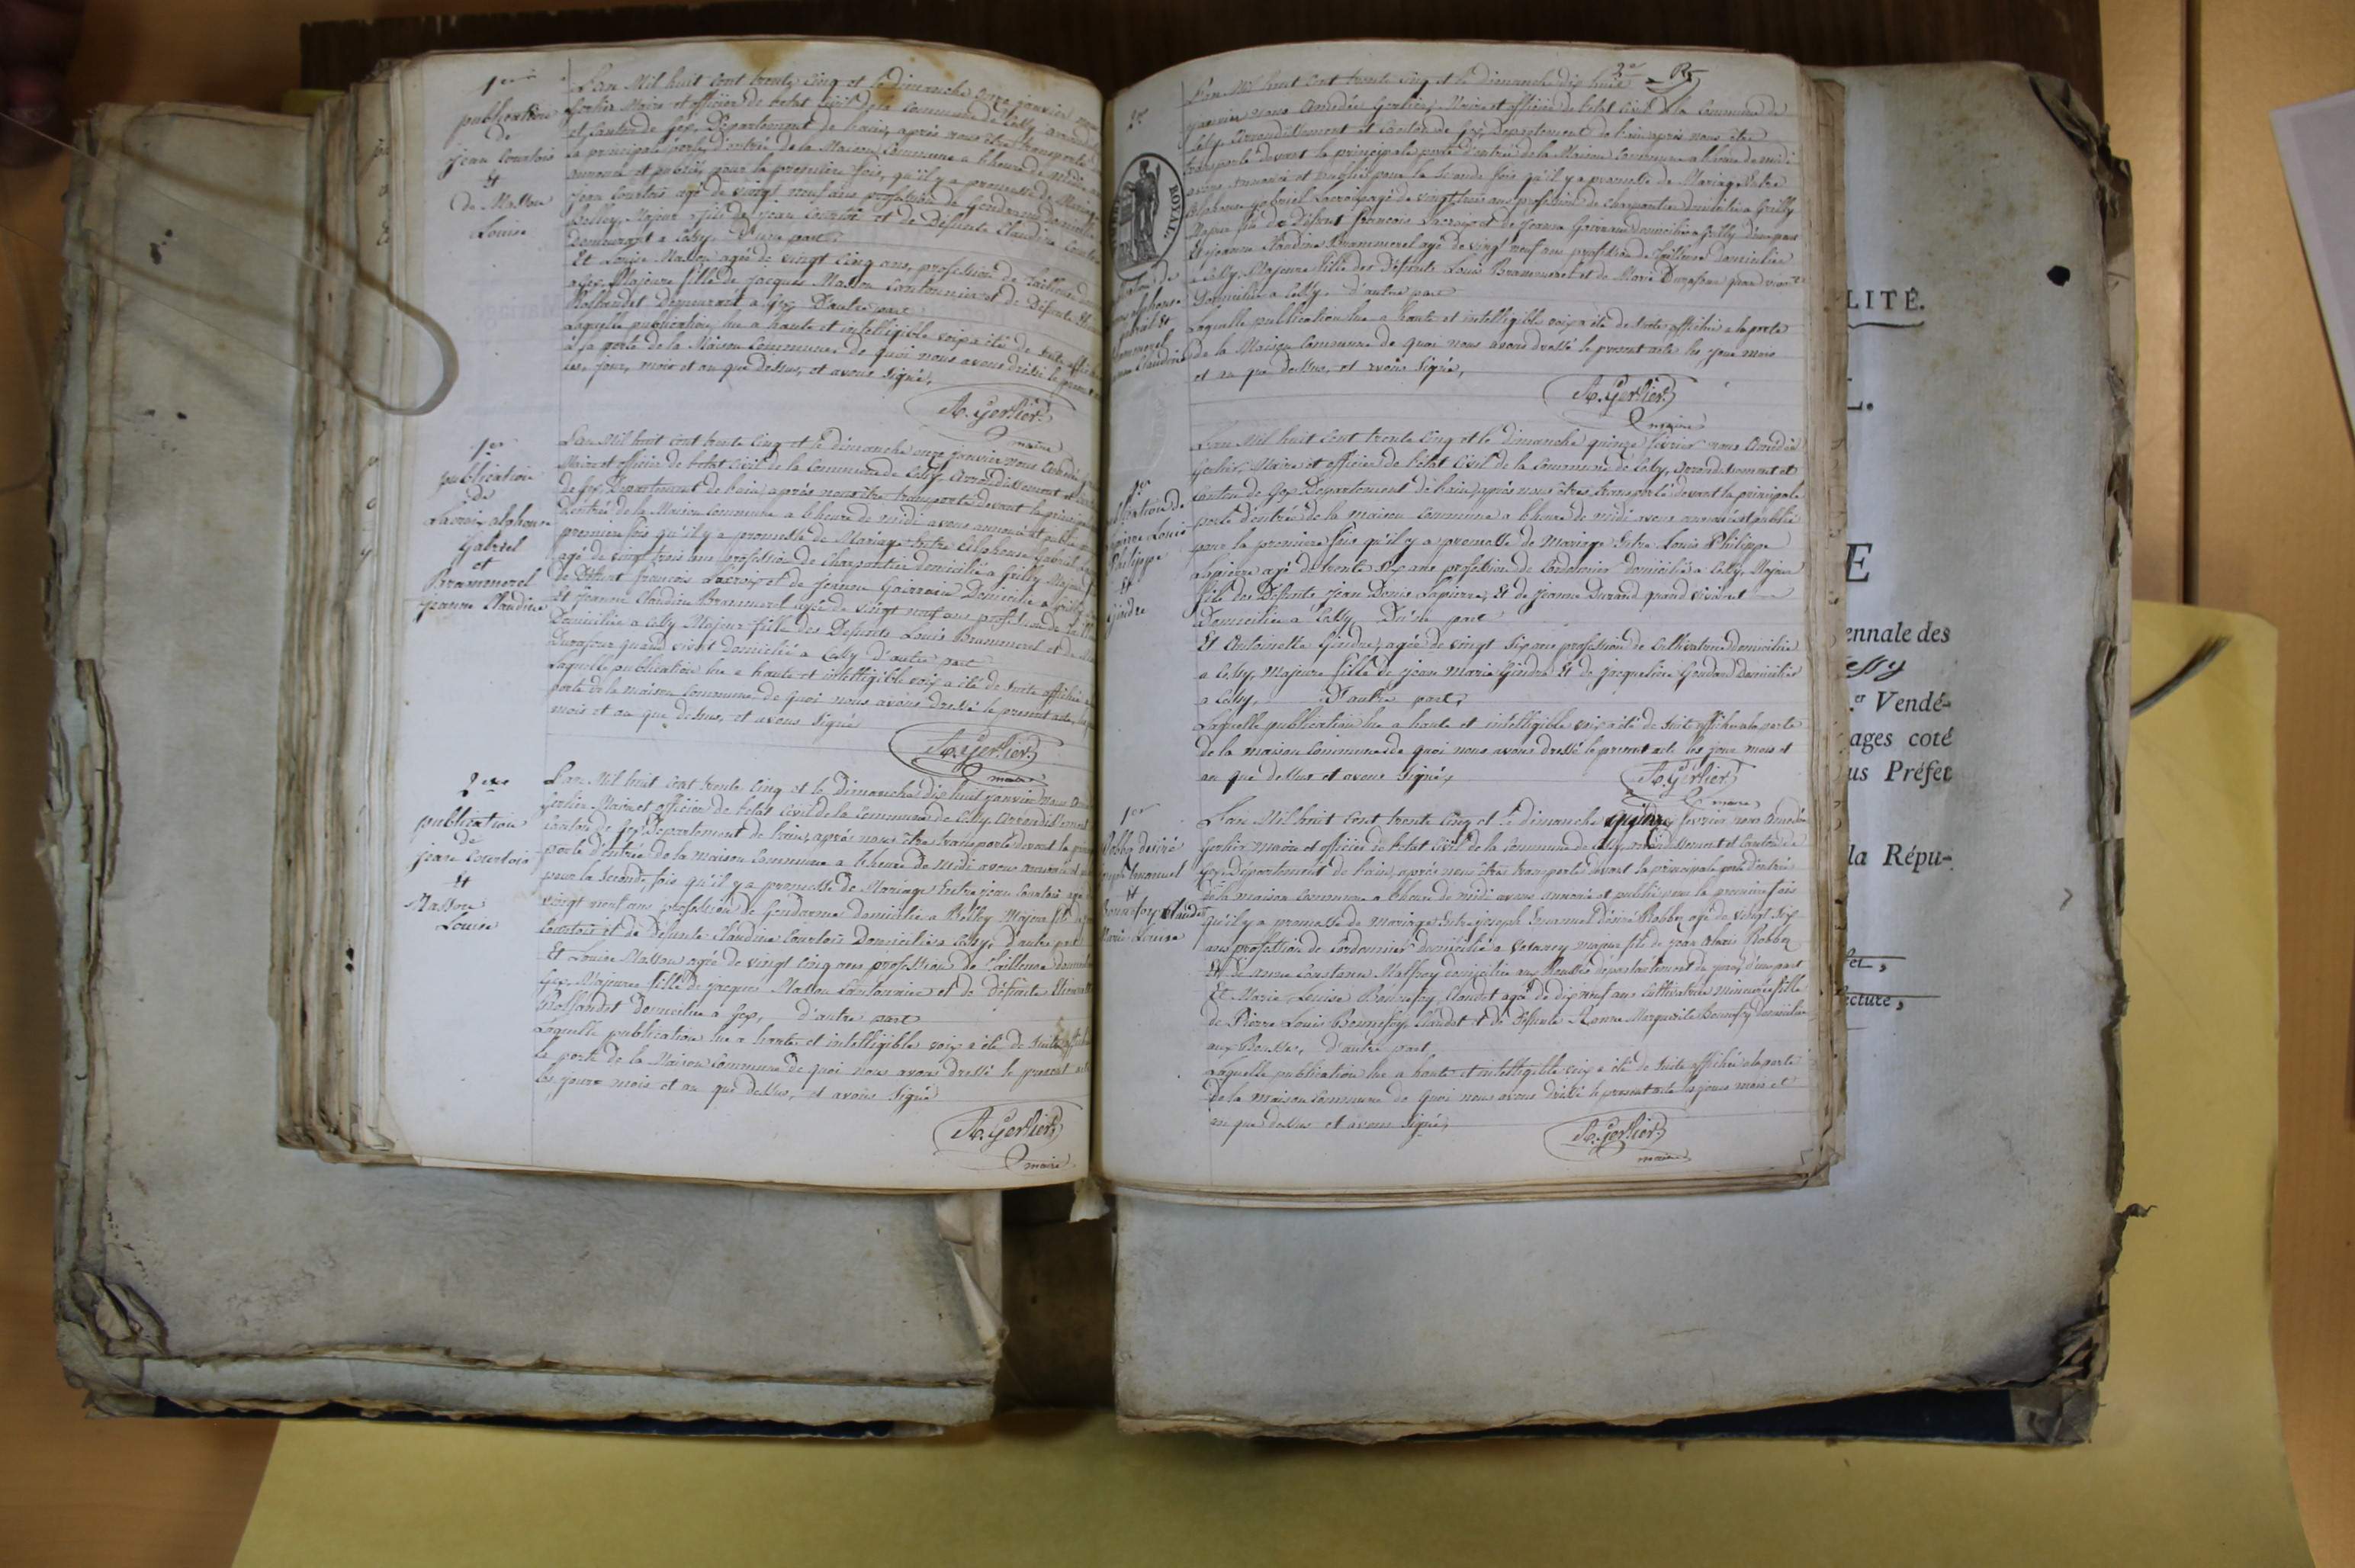 1ere
publication
de
jean Courtois
Et
de Masson
Louise
L'an Mil huit Cent trente Cinq et le dimanche onze janvier nous
Gerlier Maire et officier de l'etat Civil de la Commune de Cessy, arrond
et Canton de Gex, Département de l'ain, après nous être transporté
la principale porte d'entrée de la Maison Commune a l'heure de midi
annoncé et publié, pour la première fois, qu'il y a promesse de Mariage
jean Courtois agé de vingt neuf ans profession de Gendarme domicilié
Belley, Majeur fils de jean Courtois et de Défunte Claudine Courtois
Demeurant a Cessy. D'une part.
Et Louise Masson agée de vingt Cinq ans, profession de tailleuse
a Gex, Majeure fille de jacques Masson Cantonnier et de Défunte
Demeurant a Gex, D'autre part
Laquelle publication lue a haute et intelligible voix a été de suite affichée
a la porte de la Maison Commune de quoi nous avons dréssé le présent
les, jour, mois et an que dessus, et avons signé,
A. Gerlier
maire
1er
publication
de
Lacroix alphonse
Gabriel
et
Brammerel
jeanne Claudine
L'an Mil huit Cent trente Cinq et le dimanche onze janvier nous Amedée
Maire et officier de l'etat Civil de la Commune de Cessy, Arrondissement et
de Gex, Département de l'ain, après nous être transporté devant la principale
d'entrée de la Maison Commune a l'heure de midi avons annoncé et publié
première fois qu'il y a promesse de Mariage Entre Alphonse Gabriel
agé de vingt trois ans profession de Charpentier domicilié a Grilly Majeur
de Défunt françois Lacroix et de jeanne Domicilié a Grilly
Et jeanne Claudine Brammerel agée de vingt neuf ans profession de
Domiciliée a Cessy Majeure fille des Défunts Louis Brammerel et de
Durafour quand vivant domicilié a Cessy d'autre part
Laquelle publication lue a haute et intelligible voix a été de suite affichée
porte de la maison Commune de quoi nous avons dressé le présent acte
mois et an que dessus, et avons signé
A. Gerlier
maire
2me
publication
de
jean Courtois
Et
Masson
Louise
L'an Mil huit Cent trente Cinq et le dimanche dix huit janvier nous
Gerlier Maire et officier de l'etat Civil de la Commune de Cessy Arrondissement
Canton de Gex Département de l'ain, après nous être transporté devant la
porte d'entrée de la maison Commune a l'heure de midi avons annoncé et
pour la Seconde fois qu'il y a promesse de Mariage Entre jean Courtois agé
vingt neuf ans profession de Gendarme domicilié a Belley Majeur fils de
Courtois et de Défunte Claudine Courtois Domicilié a Cessy, d'autre part
Et Louise Masson agée de vingt Cinq ans profession de tailleuse
Gex, Majeure fille de jacques Masson Cantonnier et de défunte
Domiciliée a Gex, d'autre part
Laquelle publication lue a haute et intelligible voix a été de suite
la porte de la Maison Commune de quoi nous avons dressé le présent
les jours mois et an que dessus, et avons signé
A. Gerlier
maire
2e
85
2e
ROYAL
de
alphonse
Et
Claudine
L'an Mil huit Cent trente Cinq et le dimanche dix huit
janvier nous Amedée Gerlier, Maire et officier de l'etat Civil de la Commune de
Cessy, arrondissement et Canton de Gex, Département de l'ain après nous être
transporté devant la principale porte d'entrée de la Maison Commune a l'heure de midi
avons annoncé et publié pour la Seconde fois qu'il y a promesse de Mariage Entre
Alphonse Gabriel Lacroix agé de vingt trois ans profession de Charpentier domicilié a Grilly
Majeur fils de Défunt françois Lacroix et de jeanne domicilié a Grilly d'une part
Et jeanne Claudine Brammerel agé de vingt neuf ans profession de tailleuse domiciliée
a Cessy Majeure fille des Défunts Louis Brammerel et de Marie Durafour quand vivant
Domicilié a Cessy. d'autre part
Laquelle publication lue a haute et intelligible voix a été de suite affichée a la porte
de la Maison Commune de quoi nous avons dressé le présent acte les jour mois
et an que dessus, et avons signé,
A. Gerlier
maire
1er
publication de
Lapierre Louis
Philippe
Et
Gindre
L'an Mil huit Cent trente Cinq et le dimanche quinze février nous Amedée
Gerlier, Maire et officier de l'etat Civil de la Commune de Cessy, arrondissement et
Canton de Gex Département de l'ain, après nous être transporté devant la principale
porte d'entrée de la maison Commune a l'heure de midi avons annoncé et publié
pour la première fois qu'il y a promesse de Mariage Entre Louis Philippe
Lapierre agé de trente Six ans profession de Cordonnier domicilié a Cessy, Majeur
fils des Défunts jean Louis Lapierre, Et de jeanne Durand quand vivant
Domicilié a Cessy D'une part
Et Antoinette Gindre, agée de vingt Six ans profession de Cultivatrice domiciliée
a Cessy, Majeure fille de jean Marie Gindre Et de jacqueline Domicilié
a Cessy, D'autre part,
Laquelle publication lue a haute et intelligible voix a été de suite affichée a la porte
de la maison Commune de quoi nous avons dressé le présent acte les jour mois et
an que dessus et avons signé,
A. Gerlier
maire
1er
Robbez desiré
joseph Emanuel
Et
Bonnefoy Claudet
Marie Louise
L'an Mil huit Cent trente Cinq et le dimanche quinze février nous Amedée
Gerlier maire et officier de l'etat Civil de la Commune de Cessy, arrondissement et Canton de
Gex, département de l'ain, après nous être transporté devant la principale porte d'entrée
de la maison Commune a l'heure de midi avons annoncé et publié pour la première fois
qu'il y a promesse de mariage Entre joseph Emanuel Désiré Robbez agé de vingt Six
ans profession de Cordonnier domicilié a majeur fils de jean Robbez
Et de anne Constance domicilié aux Rousses département du jura, d'une part
Et Marie Louise Bonnefoy Claudet agé de dix neuf ans Cultivatrice mineure fille
de Pierre Louis Bonnefoy Claudet et de Défunte Marguerite Bonnefoy Domicilié
aux Rousses, d'autre part
Laquelle publication lue a haute et intelligible voix a été de suite affichée a la porte
De la maison Commune de quoi nous avons dressé le présent acte les jours mois et
an que dessus et avons signé,
A. Gerlier
maire
LITÉ.
E
ennale des
essy
.er Vendé-
ages coté
us Préfet
la Répu-
ecture,